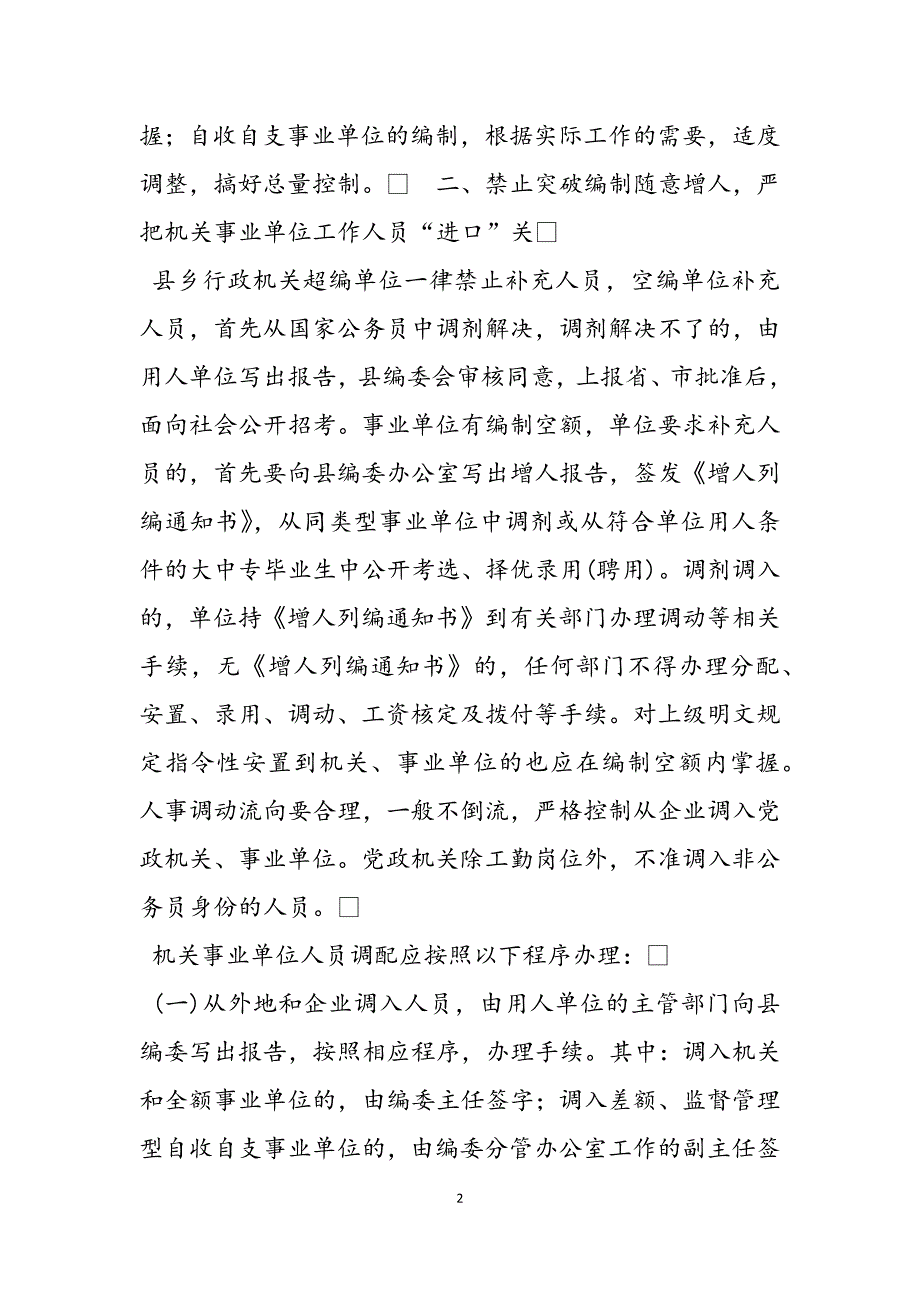 握；自收自支事业单位的编制，根据实际工作的需要，适度
调整，搞好总量控制。□　二、禁止突破编制随意增人，严
把机关事业单位工作人员“进口”关□
县乡行政机关超编单位一律禁止补充人员，空编单位补充
人员，首先从国家公务员中调剂解决，调剂解决不了的，由
用人单位写出报告，县编委会审核同意，上报省、市批准后，
面向社会公开招考。事业单位有编制空额，单位要求补充人
员的，首先要向县编委办公室写出增人报告，签发《增人列
编通知书》，从同类型事业单位中调剂或从符合单位用人条
件的大中专毕业生中公开考选、择优录用(聘用)。调剂调入
的，单位持《增人列编通知书》到有关部门办理调动等相关
手续，无《增人列编通知书》的，任何部门不得办理分配、
安置、录用、调动、工资核定及拨付等手续。对上级明文规
定指令性安置到机关、事业单位的也应在编制空额内掌握。
人事调动流向要合理，一般不倒流，严格控制从企业调入党
政机关、事业单位。党政机关除工勤岗位外，不准调入非公
务员身份的人员。□
机关事业单位人员调配应按照以下程序办理：□
(一)从外地和企业调入人员，由用人单位的主管部门向县
编委写出报告，按照相应程序，办理手续。其中：调入机关
和全额事业单位的，由编委主任签字；调入差额、监督管理
型自收自支事业单位的，由编委分管办公室工作的副主任签
2